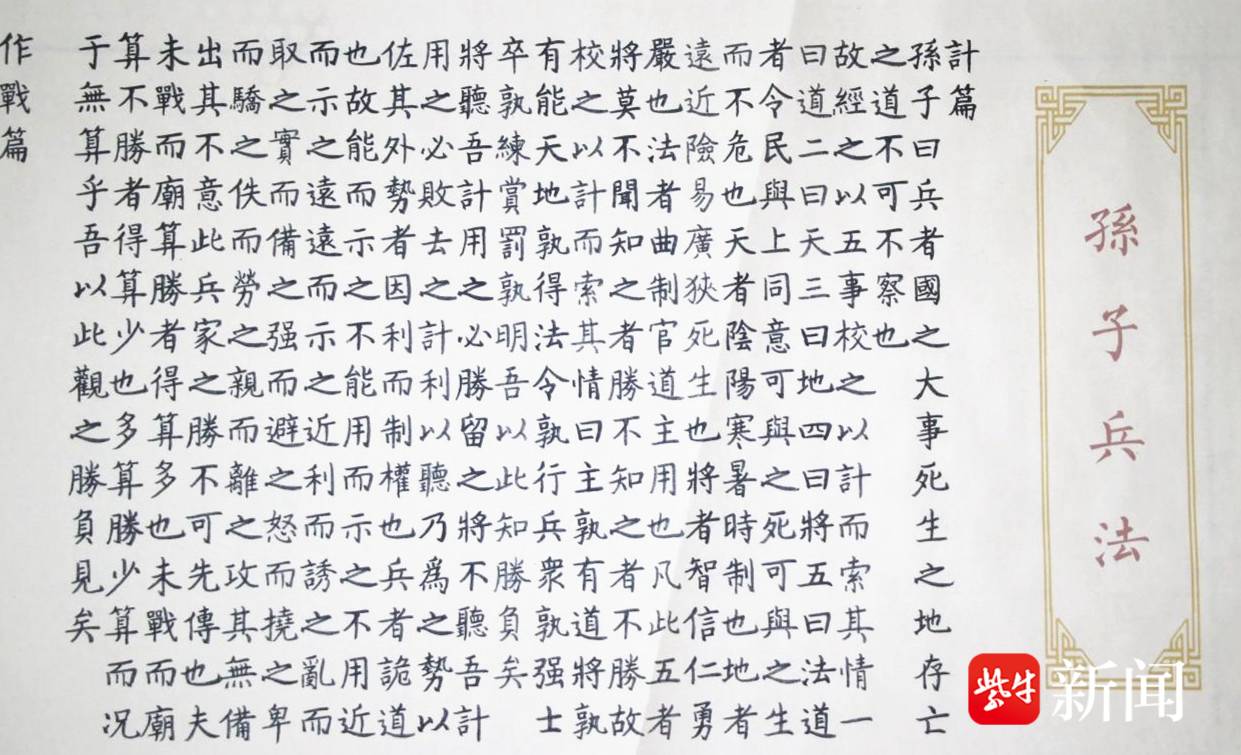 孫子兵法
計篇
孫子曰兵者國之大事死生之地存亡
之道不可不察也
故經之以五事校之以計而索其情一
曰道二曰天三曰地四曰將五曰法道
者令民與上同意可與之死可與之生
而不危也天者陰陽寒暑時制也地者
遠近險易廣狹死生也將者智信仁勇
嚴也法者曲制官道主用也凡此五者
將莫不聞知之者勝不知之者不勝故
校之以計而索其情曰主孰有道將孰
有能天地孰得法令孰行兵衆孰强士
卒孰練賞罰孰明吾以此知勝負矣
將聽吾計用之必勝留之將不聽吾計
用之必敗去之計利以聽乃爲之勢以
佐其外勢者因利而制權也兵者詭道
也故能而示之不能用而示之不用近
而示之遠遠而示之近利而誘之亂而
取之實而備之强而避之怒而撓之卑
而驕之佚而勞之親而離之攻其無備
出其不意此兵家之勝不可先傳也夫
未戰而廟算勝者得算多也未戰而廟
算不勝者得算少也多算勝少算而况
于無算乎吾以此觀之勝負見矣
作戰篇
紫牛新闻